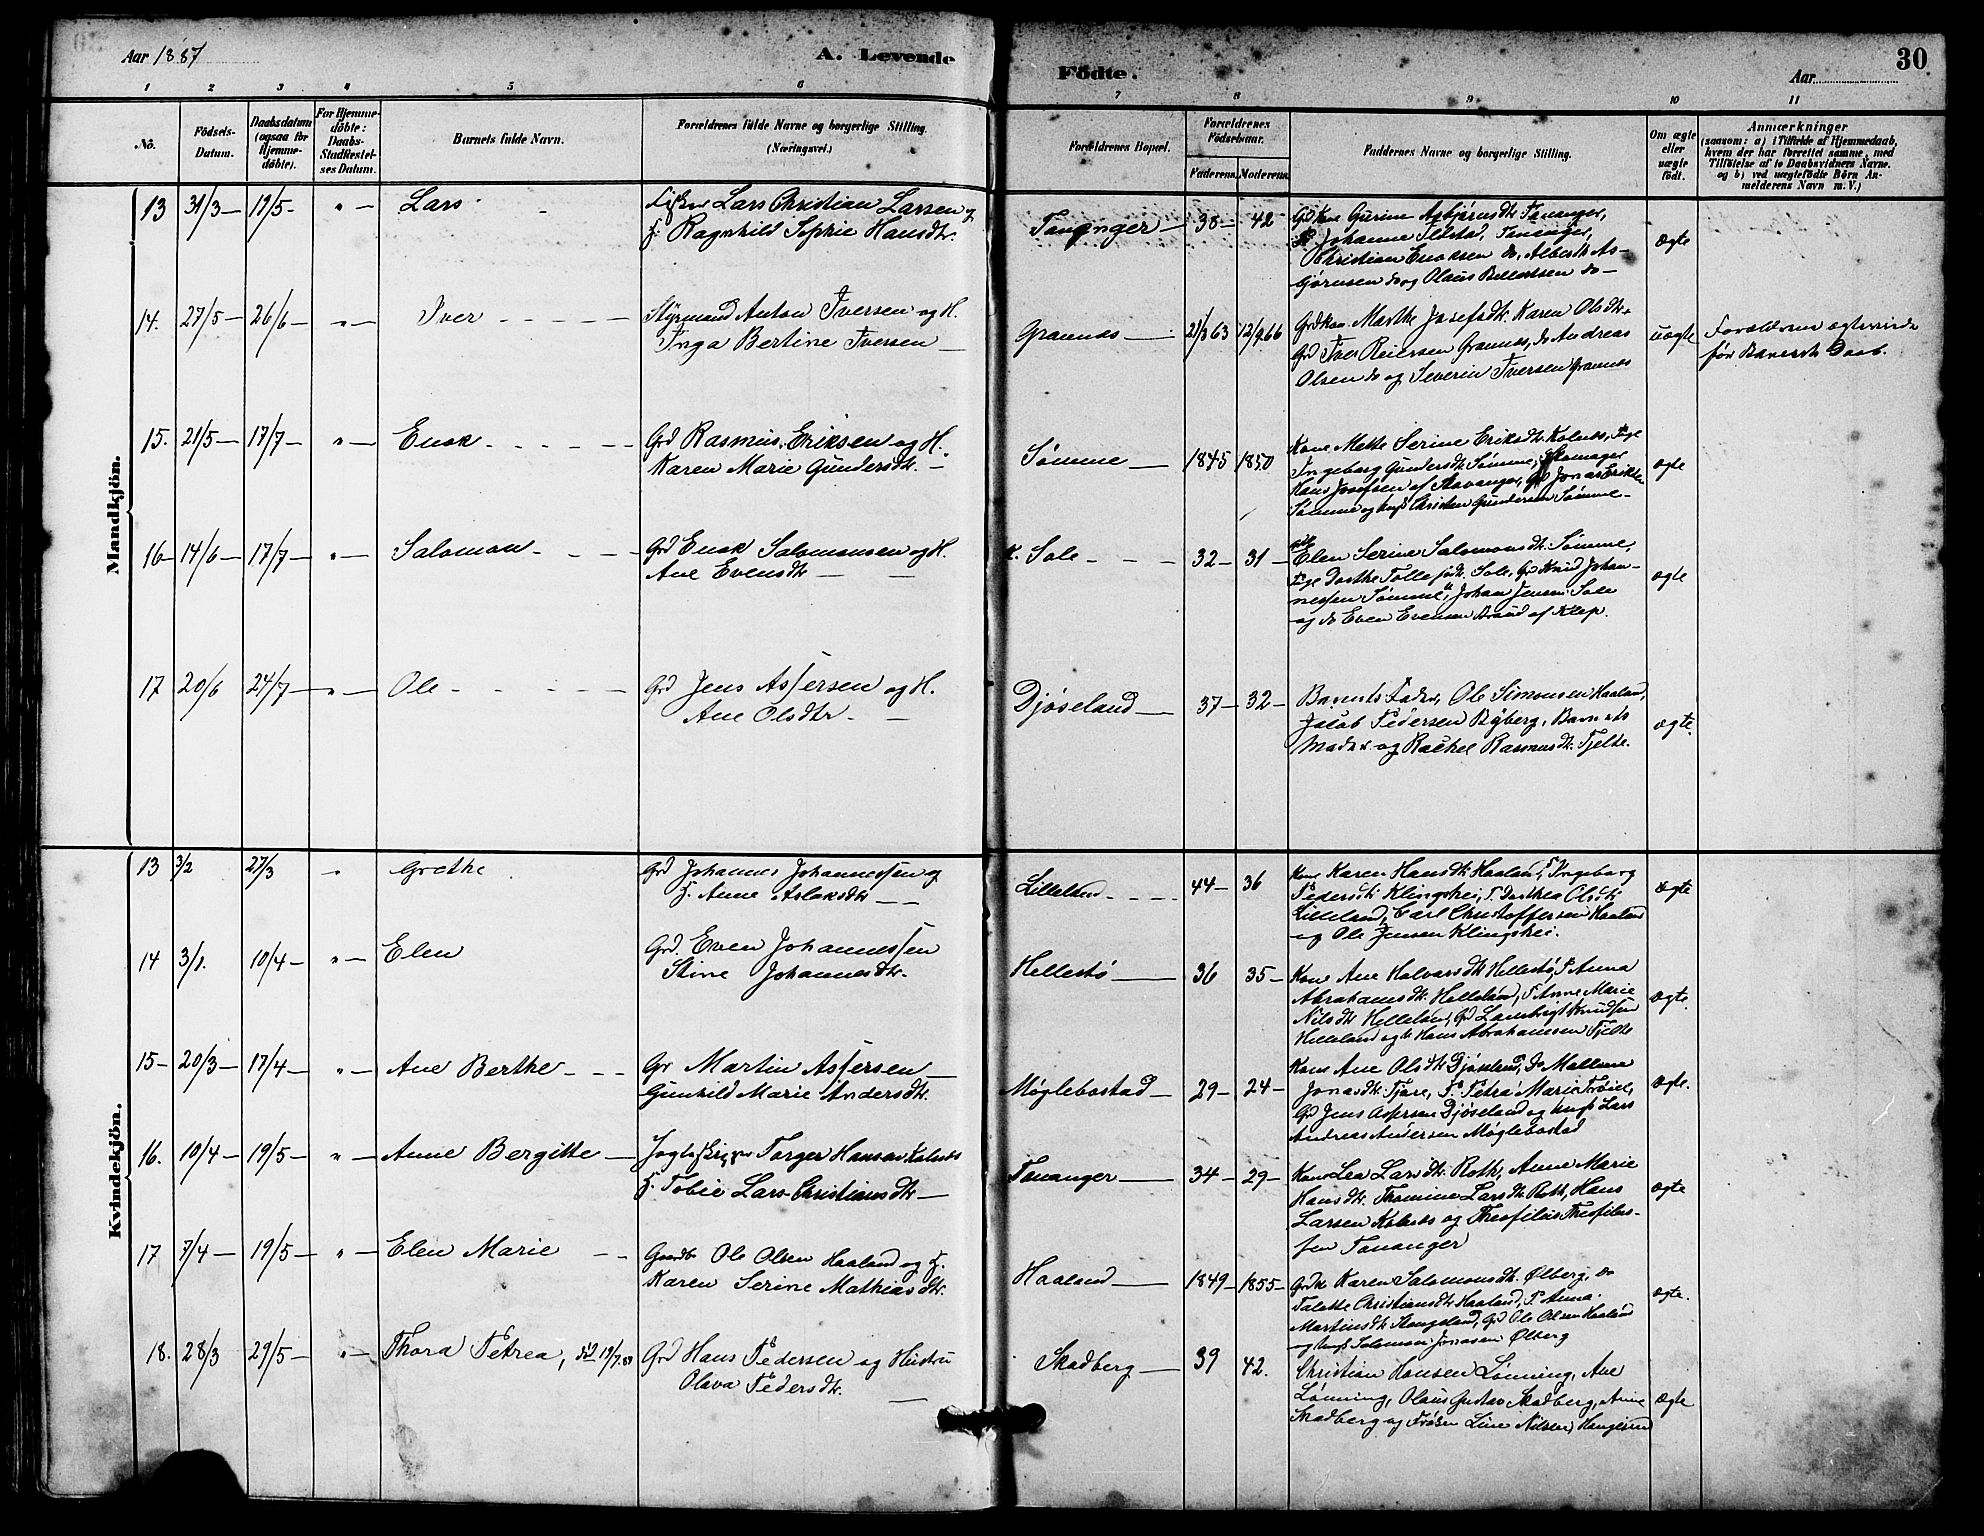 Aar 1887
A. Levende
Födte.
Aar
30
1 2 3 4 5 6 7 8 9 10 11
No.
Födsels-
Datum.
Daabsdatum
(ogsaa for
Hjemme-
döbte).
For Hjemme-
döbte:
Daabs-
Stadfestel-
ses Datum.
Barnets fulde Navn.
Forældrenes fulde Navne og borgerlige Stilling.
(Næringsvei.)
Forældrenes Bopæl.
Forældrenes
Födselsaar.
Faderens. Moderens.
Faddernes Navne og borgerlige Stilling.
Om ægte
eller
uægte
födt.
Anmærkninger
(saasom: a) i Tilfælde af Hjemmedaab,
hvem der har forrettet samme, med
Tilföielse af to Daabsvidners Navne.
og b) ved uægtefödte Börn An-
melderens Navn m. V.)
Mandkjön.
13 31/3 — 19/5 - " — Lars
Fisker Lars Christian Larsen og
H. Ragnhild Sophie Hansdtr.
Tananger — 38 — 42
Gurine Asbjørnsdtr Tananger,
Johanne Tananger,
Christian Enoksen do, Albert As-
gjørnsen do og Olaus do —
Ægte
14. 27/5 — 26/6 — " — Iver
Styrmand Anton Iversen og H.
Inga Bertine Iversen
Grannes — 21/8 63 12/9 66
Grdkon. Marthe Josefsdtr. Karen Olsdtr.
Grd Iver Reiersen Grannes, do Andreas
Olsen do og Severin Iversen Grannes
uægte
Forældrene ægteviede
før Barnets Daab.
15. 21/5 — 17/7 — " — Enok
Grd Rasmus Eriksen og H.
Karen Marie Gundersdtr.
Sømme — 1845 1850
Kone Mette Serine Eriksdtr Kolnes, Pige
Ingeborg Gundersdtr Sømme, Skomager
Hans Josefsen af Stavanger, Grd Jonas Eriksen
Sømme og Ungk Christen Gundersen Sømme —
ægte
16 — 14/6 — 17/7 — " — Salomon
Grd Enok Salomonsen og H.
Ane Evensdtr
Sole — 32 — 31
Elen Serine Salomonsdtr. Sømme,
Pige Dorthe Tollefsdtr. Sole, Grd Knud Johan-
nessen Sømme, Johan Jensen Sole
og do Even Evensen Braud af Klep.
ægte
17 20/6 24/7 — " — Ole
Grd Jens Assersen og H.
Ane Olsdtr
Djøseland — 37 — 32
Barnets Fader, Ole Simonsen Haaland,
Jacob Pedersen Ryberg, Barnets
Moder og Rachel Rasmusdtr. Tjelte.
ægte.
Kvindekjön.
13 3/2 27/3 " Grethe
Grd Johannes Johannessen og
H. Anne Aslaksdtr
Lilleland — 44 — 36
Kone Karen Hansdtr Haaland, P Ingeborg
Pedersdtr Klingshei, P. Dorthea Olsdtr
Lilleland, Carl Christoffersen Haaland
og Ole Jensen Klingshei.
ægte
14 3/1. 10/4 — " — Elen
Grd. Even Johannessen
Stine Johannesdtr.
Hellestø — 36 35
Kone Ane Halvarsdtr Hellestø, P Anna
Abrahamsdtr. Helleland, P Anne Marie
Nilsdtr Helleland, Grd Lambrigt Knudsen
Helleland og Hans Abrahamsen Tjelte
ægte.
15 — 20/3 — 17/4 — " — Ane Berthe
Gr Martin Assersen
Gunhild Marie Andersdtr.
Møglebostad — 29 — 24
Kone Ane Olsdtr Djøseland, do Mallene
Jonasdtr. Tjore, P. Petra Marie
Grd Jens Assersen Djøseland og Ungk Lars
Andreas Andersen Møglebostad
ægte.
16. 10/4 — 19/5 — " — Anne Bergitte
Jagteskipper Torger Hansen Kolnes
H. Tobie Lars Christiansdtr
Tananger — 34 — 29
Kone Lea Larsdtr. Roth, Anne Marie
Hansdtr. Thomine Larsdtr Roth, Hans
Larsen Kolnes og Theofilus Theofilus-
sen Tananger
ægte
17 7/4 — 19/5 — " — Elen Marie
Gaardbr Ole Olsen Haaland og H.
Karen Serine Mathiasdtr.
Haaland — 1849 — 1855
Grdk Karen Salomonsdtr. Ølberg, do
Talette Christiansdtr Haaland, P. Anna
Martinsdtr Stangeland, Grd Ole Olsen Haaland
og Ungk Salomon Jonassen Ølberg
ægte.
18. 28/3 29/5 — " — Thora Petrea, død 19/7
Grd Hans Pedersen og Hustru
Olava Pedersdtr.
Skadberg — 39 42.
Christian Hansen Lønning, Ane
Lønning, Olaus Gustav Skadberg, Anne
Skadberg og Frøken Line Nilsen,
Ægte